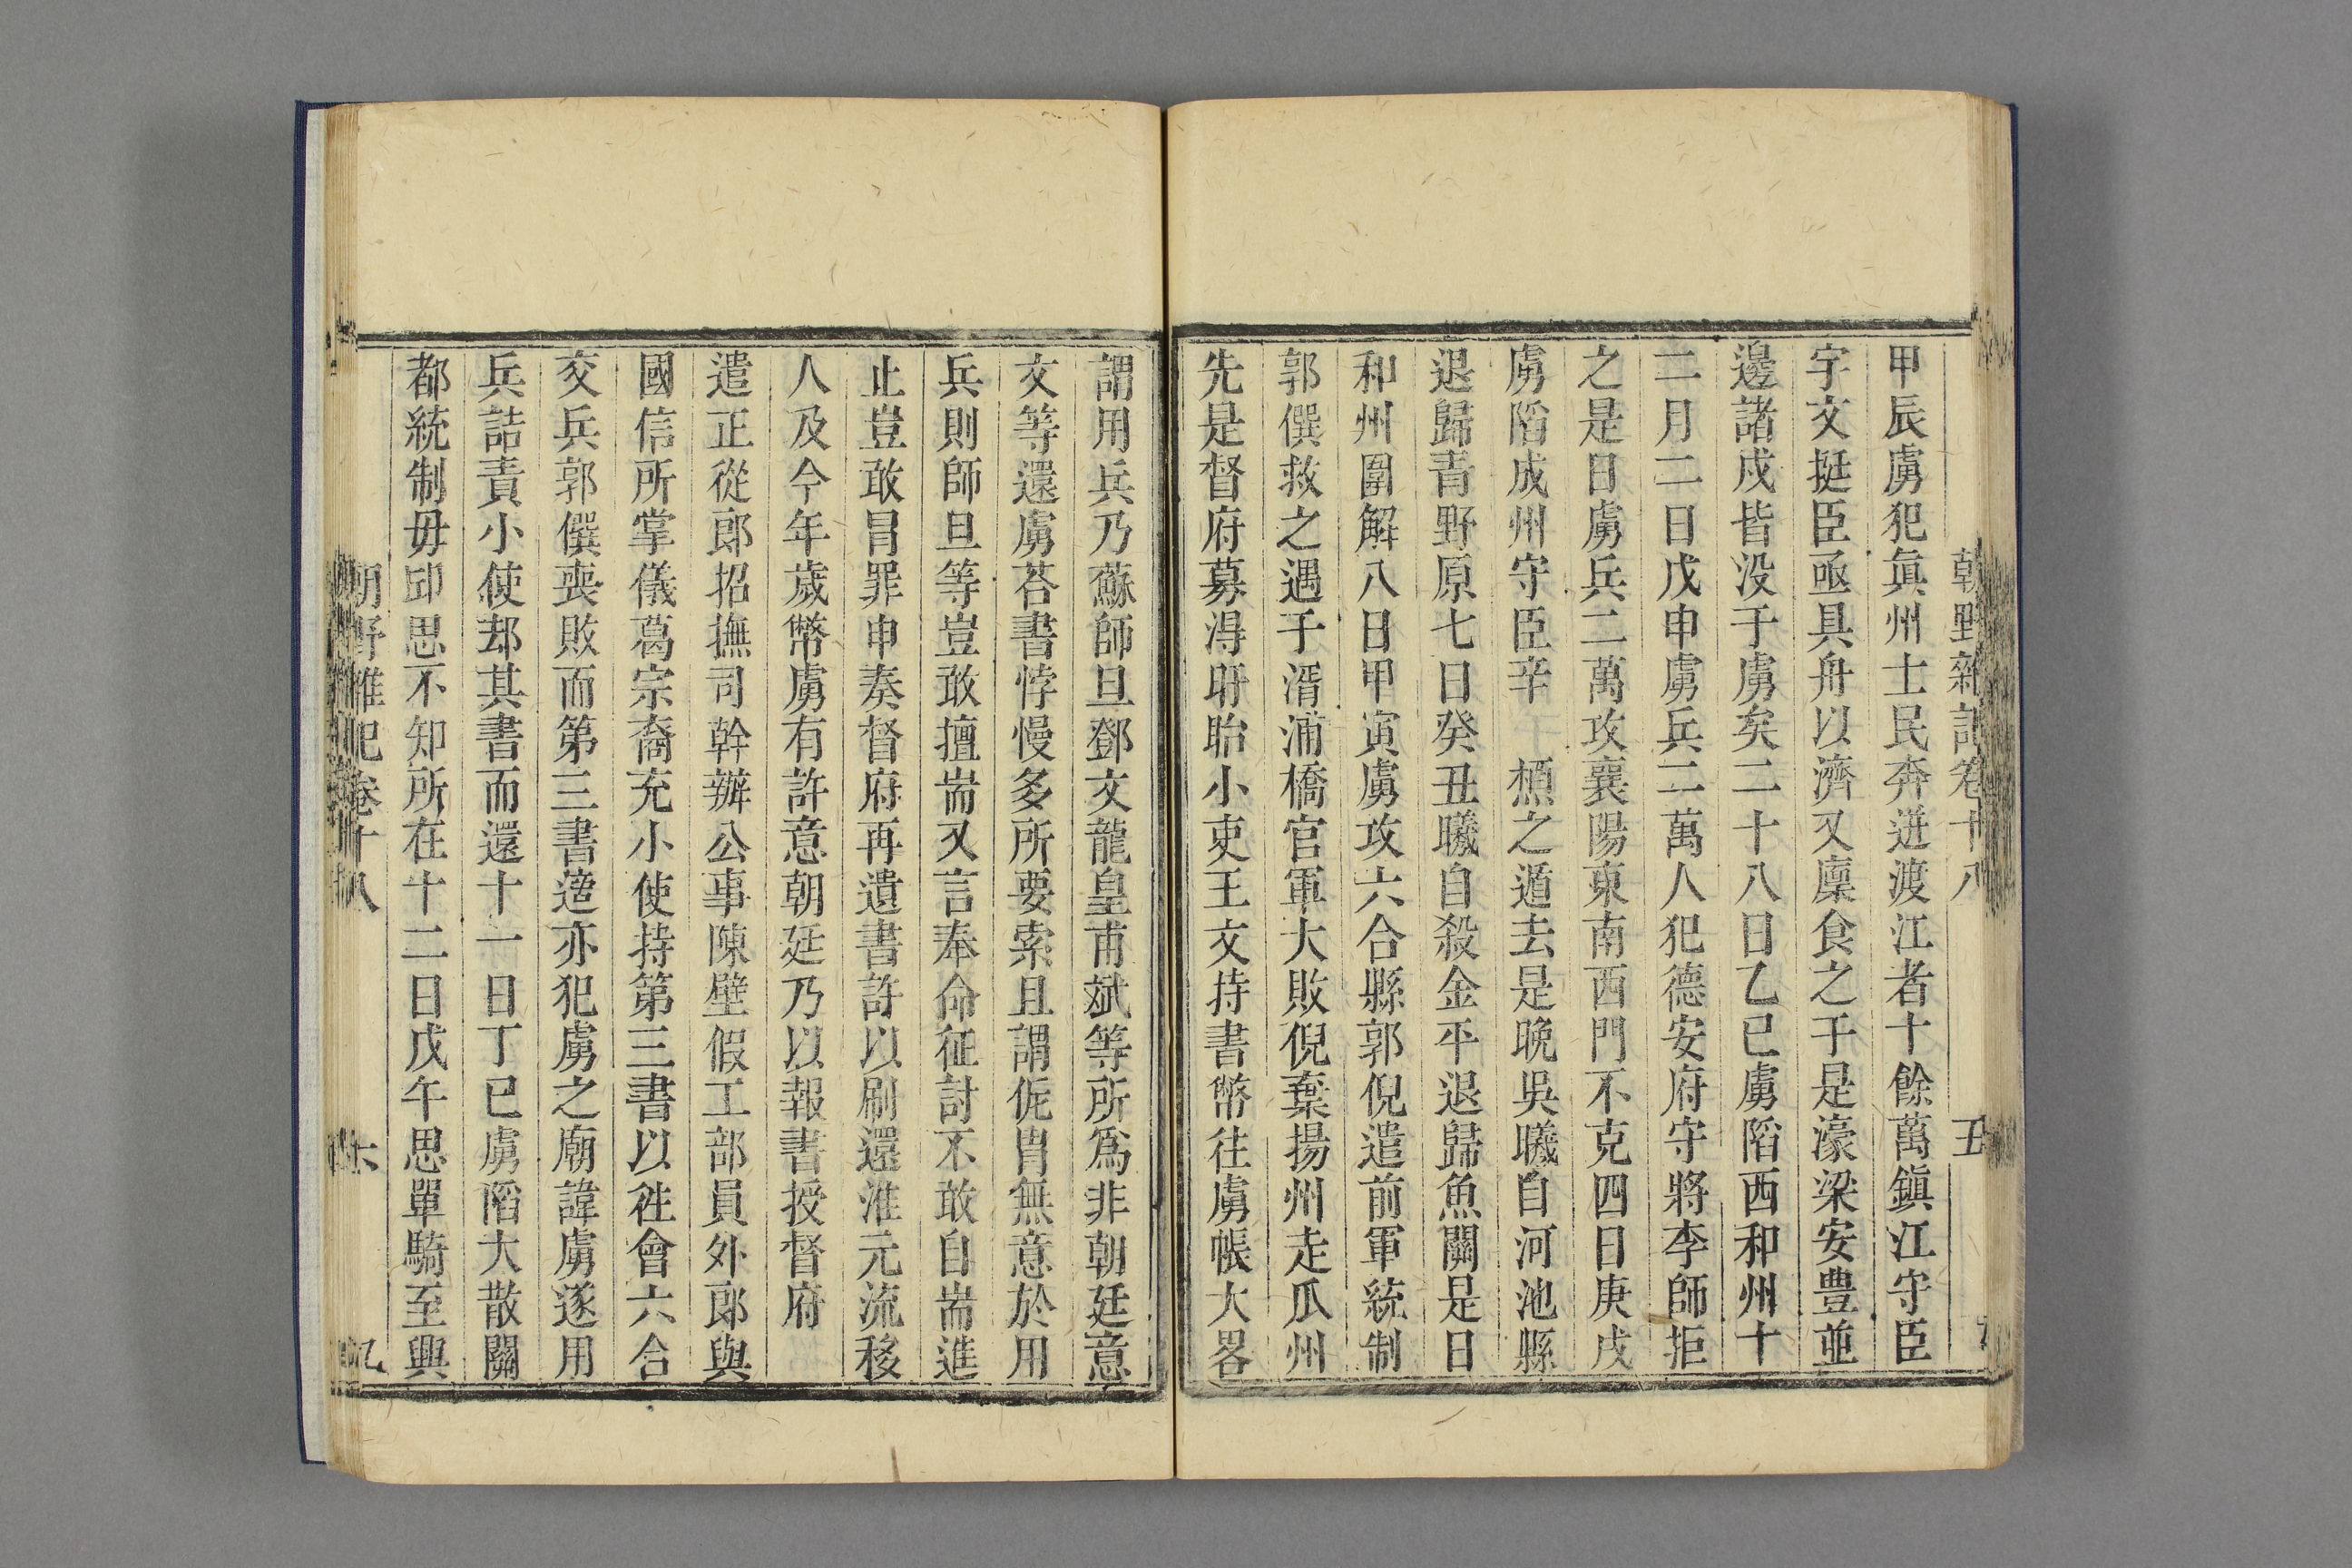 朝野雜記卷十八
五
甲辰虜犯眞州士民奔迸渡江者十餘萬鎭江守臣
宇文挺臣亟具舟以濟又廩食之于是濠梁安豊並
邊諸戍皆没于虜矣二十八日乙巳虜陷西和州十
二月二日戊申虜兵二萬人犯德安府守將李師拒
之是日虜兵二萬攻襄陽東南西門不克四日庚戌
虜陷成州守臣辛 槱之遁去是晚吳曦自河池縣
退歸青野原七日癸丑曦自殺金平退歸魚關是日
和州圍解八日甲寅虜攻六合縣郭倪遣前軍統制
郭僎救之遇于湑浦橋官軍大敗倪棄揚州走瓜州
先是督府募得盱眙小吏王文持書幣往虜帳大畧
謂用兵乃蘇師旦鄧文龍皇甫斌等所爲非朝廷意
文等還虜荅書悖慢多所要索且謂侂胄無意於用
兵則師旦等豈敢擅耑又言奉命征討不敢自耑進
止豈敢冒罪申奏督府再遺書許以刷還淮元流移
人及今年歲幣虜有許意朝廷乃以報書授督府
遣正從郎招撫司幹辦公事陳壁假工部員外郎與
國信所掌儀葛宗裔充小使持第三書以徃會六合
交兵郭僎喪敗而第三書䓬亦犯虜之廟諱虜遂用
兵詰責小使却其書而還十一日丁巳虜陷大散關
都統制毋邱思不知所在十二日戊午思單騎至興
朝野雜記卷十八
六